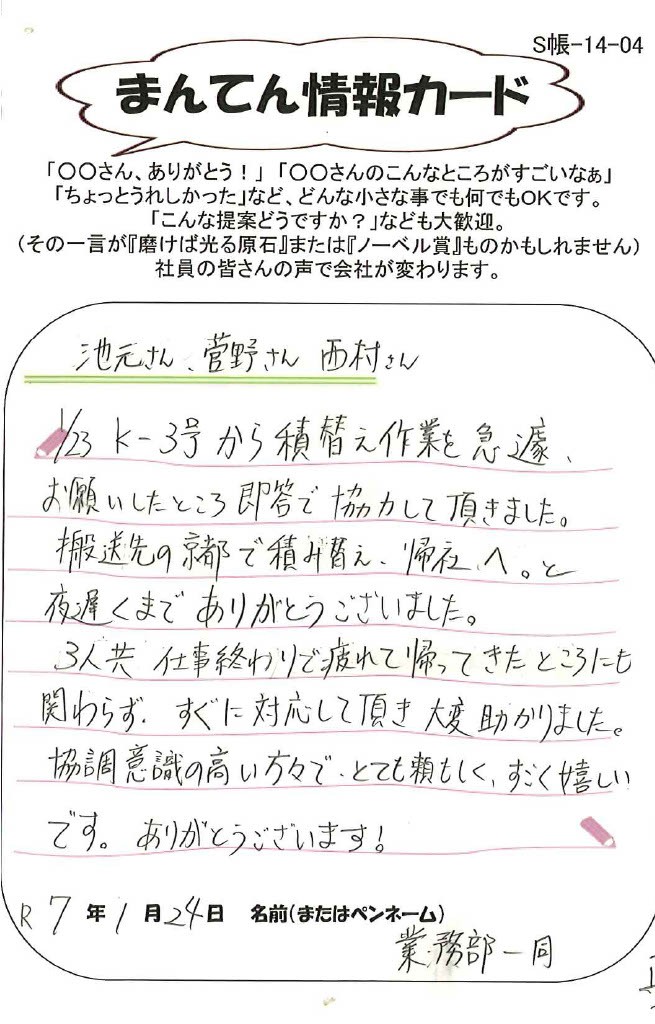 S帳-14-04
まんてん情報カード
「〇〇さん、ありがとう！」「〇〇さんのこんなところがすごいなぁ」
「ちょっとうれしかった」など、どんな小さな事でも何でもOKです。
「こんな提案どうですか？」なども大歓迎。
（その一言が『磨けば光る原石』または『ノーベル賞』ものかもしれません）
社員の皆さんの声で会社が変わります。
池元さん、菅野さん 西村さん
1/23 K-3号から積替え作業を急遽、
お願いしたところ即答で協力して頂きました。
搬送先の京都で積み替え、帰社へ。と
夜遅くまでありがとうございました。
3人共 仕事終わりで疲れて帰ってきたところにも
関わらず、すぐに対応して頂き大変助かりました。
協調意識の高い方々で、とても頼もしく、すごく嬉しい
です。ありがとうございます!
R7年1月24日 名前（またはペンネーム）
業務部一同